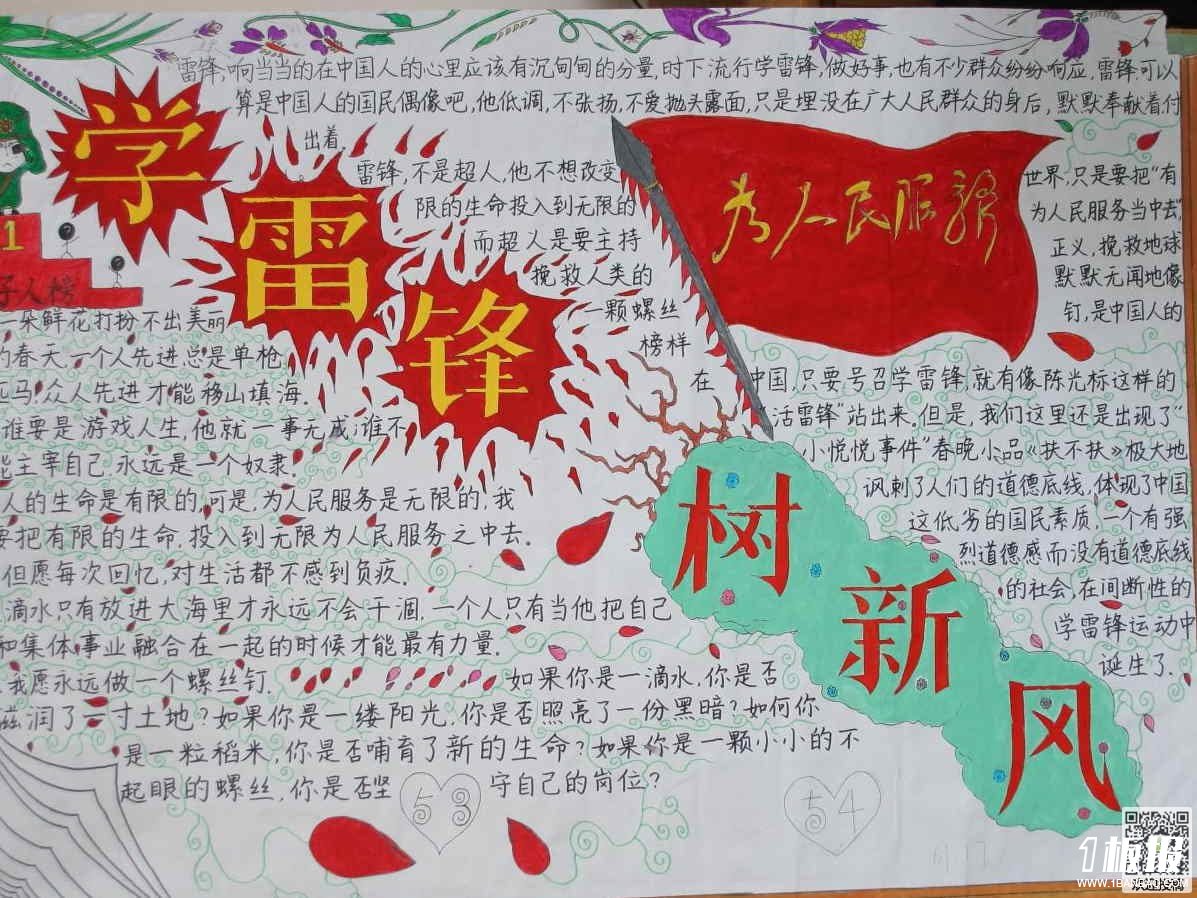 雷锋,响当当的在中国人的心里应该有沉甸甸的分量,时下流行学雷锋,做好事,也有不少群众纷纷响应.雷锋,可以
算是中国人的国民偶像吧,他低调,不张扬,不爱抛头露面,只是埋没在广大人民群众的身后,默默奉献着付
出着.
雷锋,不是超人,他不想改变
世界,只是要把“有
限的生命投入到无限的
为人民服务当中去”,
而超人是要主持
正义,挽救地球
挽救人类的
默默无闻地像
一颗螺丝
钉,是中国人的
榜样
学
雷
锋
为人民服务
1
好人榜
一朵鲜花打扮不出美丽
的春天,一个人先进总是单枪
匹马,众人先进才能移山填海.
谁要是游戏人生,他就一事无成谁不
能主宰自己,永远是一个奴隶.
人的生命是有限的,可是,为人民服务是无限的,我
要把有限的生命,投入到无限为人民服务之中去.
但愿每次回忆,对生活都不感到负疚.
滴水只有放进大海里才永远不会干涸,一个人只有当他把自己
和集体事业融合在一起的时候才能最有力量.
我愿永远做一个螺丝钉.
如果你是一滴水,你是否
滋润了一寸土地?如果你是一缕阳光,你是否照亮了一份黑暗?如何你
是一粒稻米,你是否哺育了新的生命?如果你是一颗小小的不
起眼的螺丝,你是否坚
守自己的岗位?
53
54
在中国,只要号召学雷锋,就有像陈光标这样的
“活雷锋”站出来.但是,我们这里还是出现了“
小悦悦事件”春晚小品《扶不扶》极大地
讽刺了人们的道德底线,体现了中国
这低劣的国民素质,一个有强
烈道德感而没有道德底线
的社会,在间断性的
学雷锋运动中
诞生了.
树
新
风
1板报
WWW.1BANBAO.COM
欢迎投稿